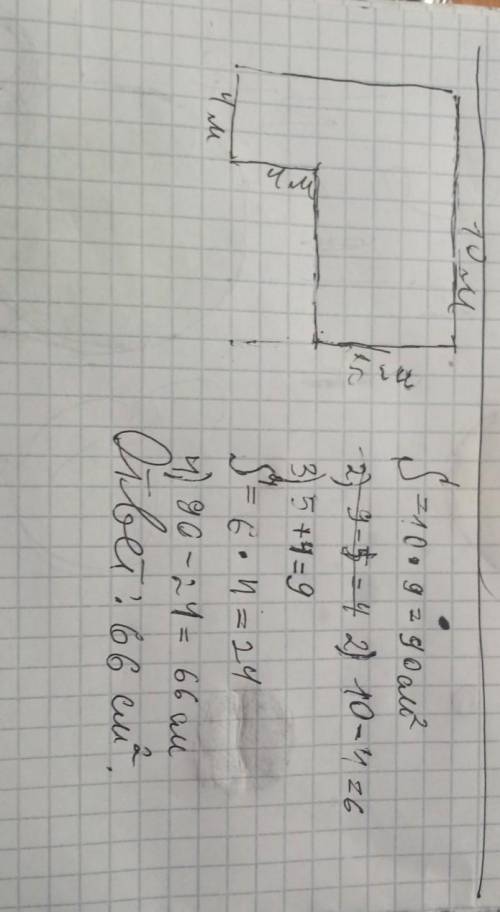 10 м
4 м
4 м
5 м
S = 10 · 9 = 90 см²
2) 9 - 5 = 4 2) 10 - 4 = 6
3) 5 + 4 = 9
S = 6 · 4 = 24
4) 90 - 24 = 66 см
Ответ: 66 см².